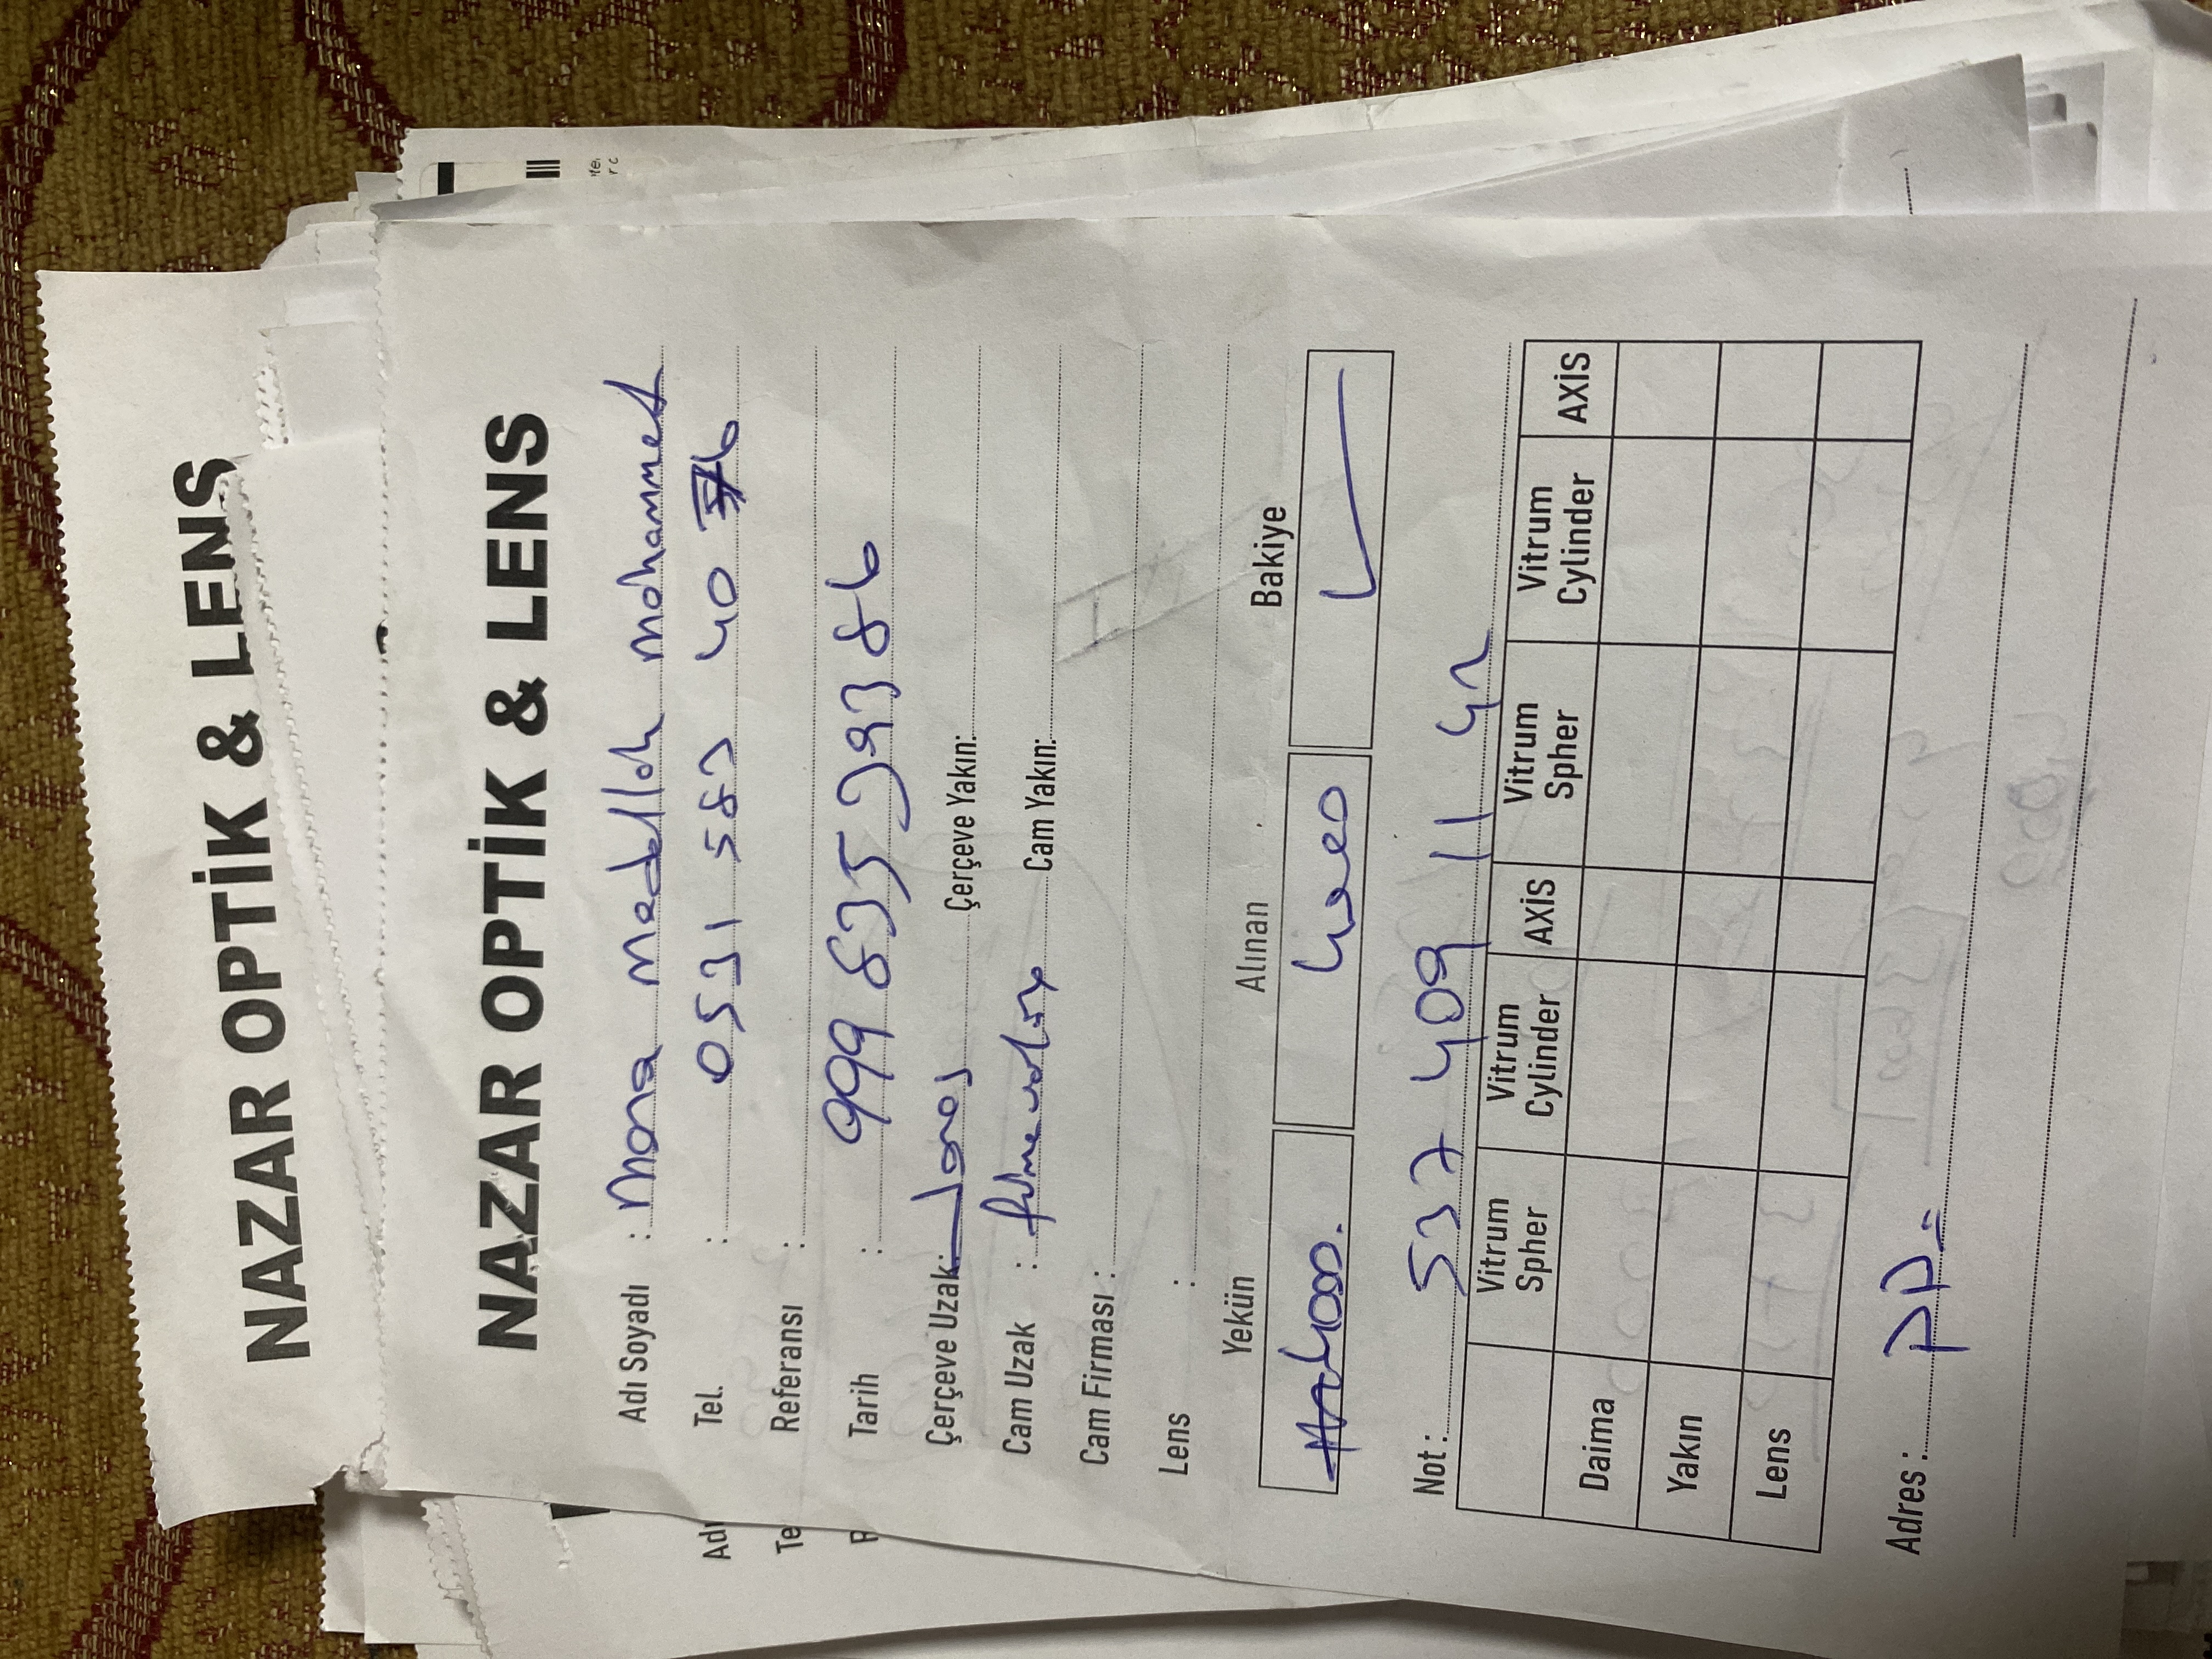 NAZAR OPTİK & LENS
NAZAR OPTİK & LENS
Adı Soyadı : Mona Madallah Mohammet
Tel. : 0531 583 40 76
Referansı :
Tarih : 999 835 39386
Çerçeve Uzak: Çerçeve Yakın:
Cam Uzak : Cam Yakın:
Cam Firması :
Lens :
Yekün Alınan Bakiye
4000. 4000
Not : 537 409 11 42
Vitrum Spher Vitrum Cylinder AXİS Vitrum Spher Vitrum Cylinder AXİS
Daima
Yakın
Lens
Adres : PD =